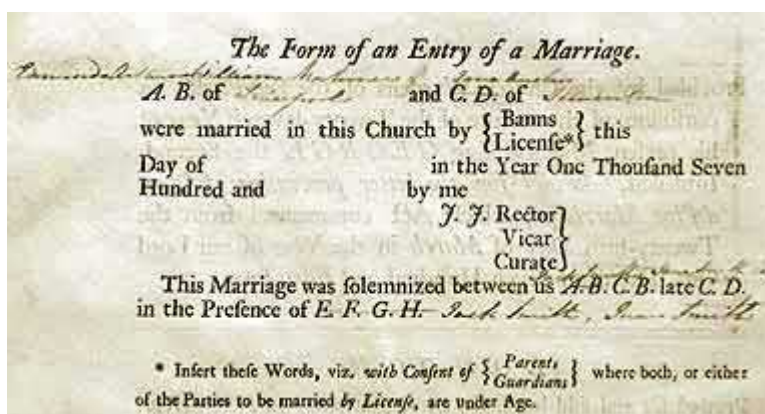 The Form of an Entry of a Marriage.
William Jane Austen
A. B. of Liverpool and C. D. of
were married in this Church by { Banns
Licenſe* } this
Day of in the Year One Thouſand Seven
Hundred and by me
J. J. Rector
Vicar
Curate }
This Marriage was ſolemnized between us A. B. C. B. late C. D.
in the Preſence of E. F. G. H. Jack Smith, Jane Smith
* Inſert theſe Words, viz. with Conſent of { Parents
Guardians } where both, or either
of the Parties to be married by Licenſe, are under Age.